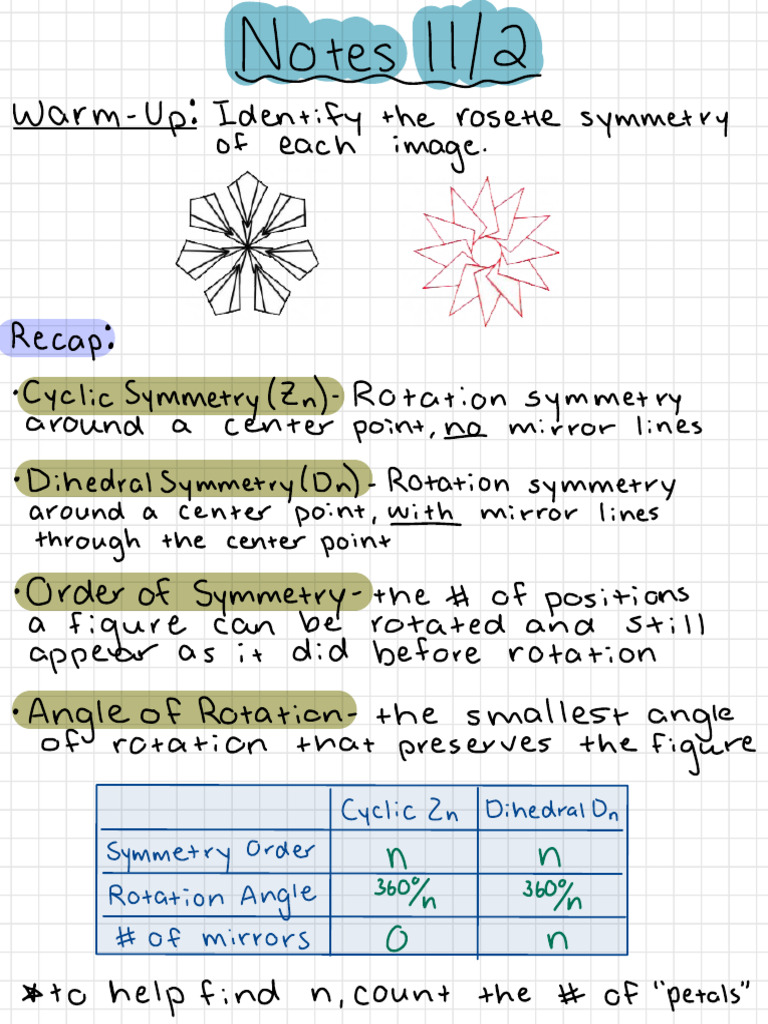 Notes 11/2
Warm-Up: Identify the rosette symmetry
of each image.
Recap:
·Cyclic Symmetry (Zn)- Rotation symmetry
around a center point, no mirror lines
·Dihedral Symmetry (Dn)- Rotation symmetry
around a center point, with mirror lines
through the center point
·Order of Symmetry- the # of positions
a figure can be rotated and still
appear as it did before rotation
·Angle of Rotation- the smallest angle
of rotation that preserves the figure
Cyclic Zn Dihedral Dn
Symmetry Order n n
Rotation Angle 360°/n 360°/n
# of mirrors 0 n
*to help find n, count the # of "petals"